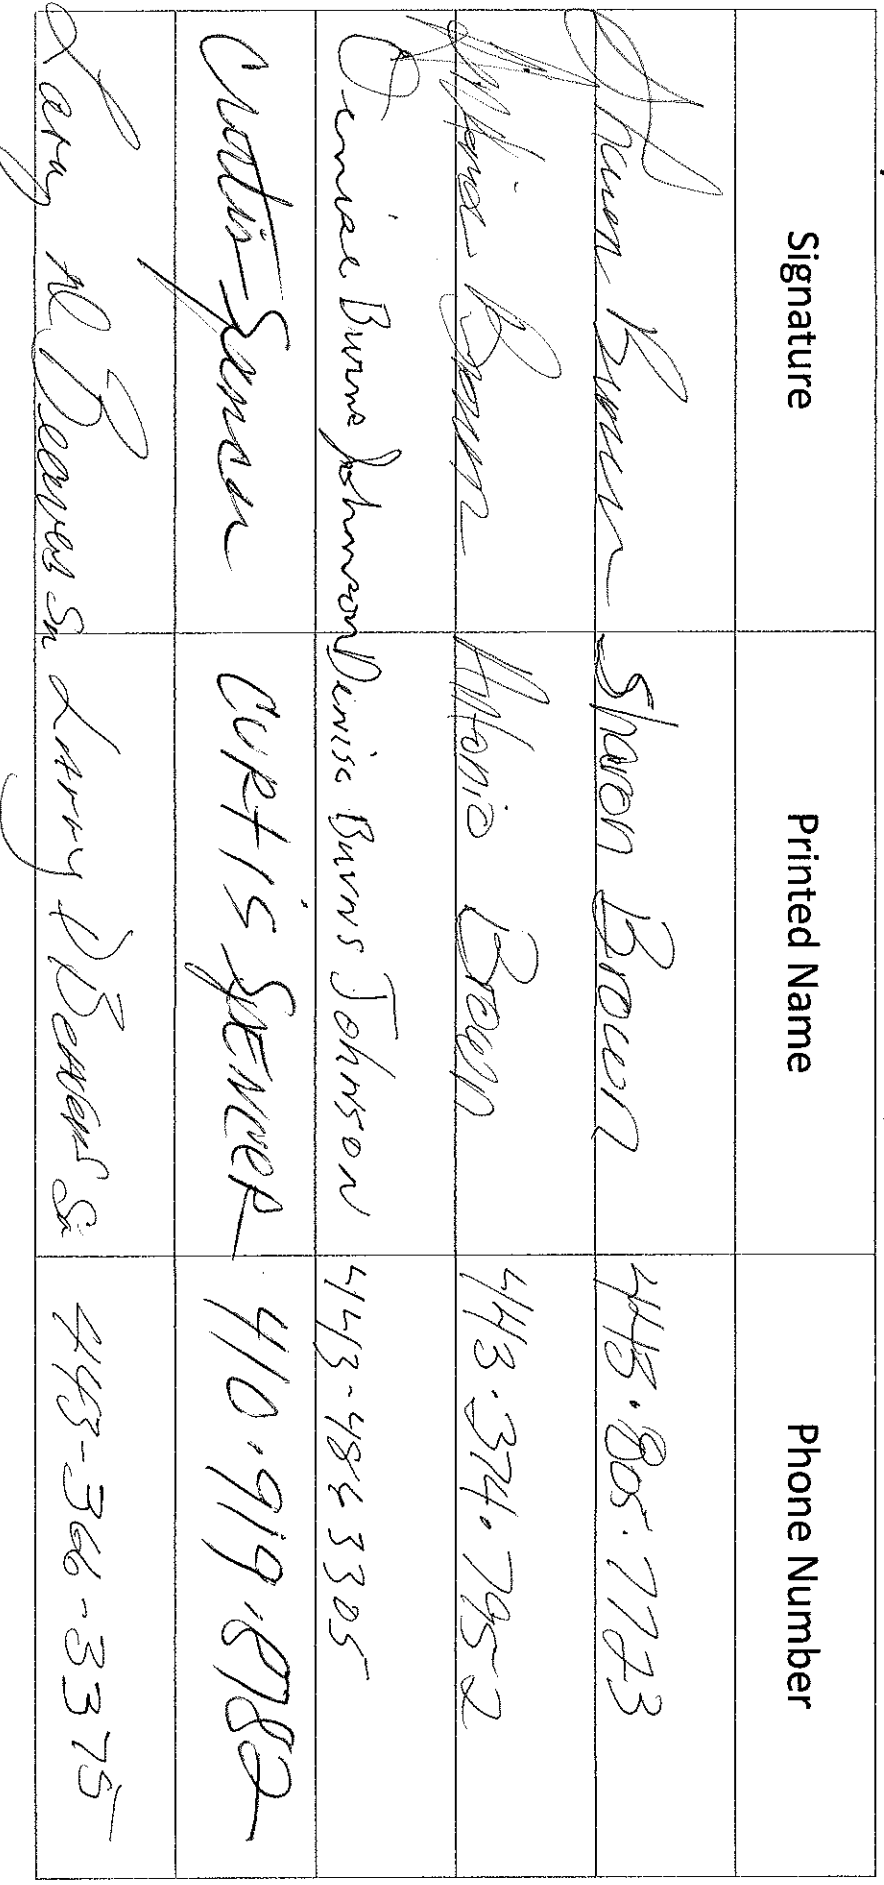 Signature Printed Name Phone Number
Sharon Brown Sharon Brown 443.805.7773
Brown Brown 443.374.7952
Denise Burns Johnson Denise Burns Johnson 443-486 3305
Curtis Spencer CURtIS SPENCER 410.919.8782
Larry D Beavers Sr LArry D Beavers Sr 443-366-3375